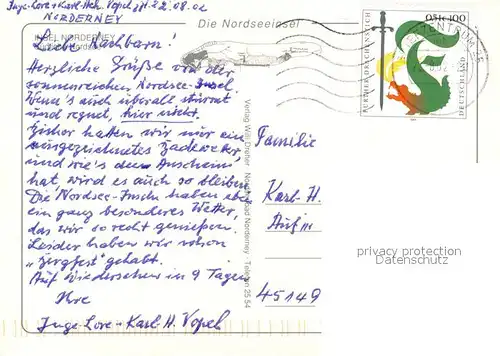 Inge-Lore + Karl-Hch. Vopel z. Zt. 22.08.02
NORDERNEY
Die Nordseeinsel
INSEL NORDERNEY
Liebe Nachbarn!
Herzliche Grüße von der
sonnenreichen Nordsee-Insel.
Wenn's auch überall stürmt
und regnet, hier nicht.
Bisher hatten wir nur ein
ausgezeichnetes Badewetter
und wie's den Anschein
hat wird es auch so bleiben.
Die Nordsee-Inseln haben eben
ein ganz besonderes Wetter,
das wir so recht genießen.
Leider haben wir schon
„Bergfest" gehabt.
Auf Wiedersehen in 9 Tagen
Ihre
Inge-Lore + Karl H. Vopel
Verlag Willi Dreher Nordseebad Norderney Telefon 25 54
FURTHER DRACHENSTICH
0,51 € 1,00
DEUTSCHLAND
Familie
Karl-H.
45149
privacy protection
Datenschutz